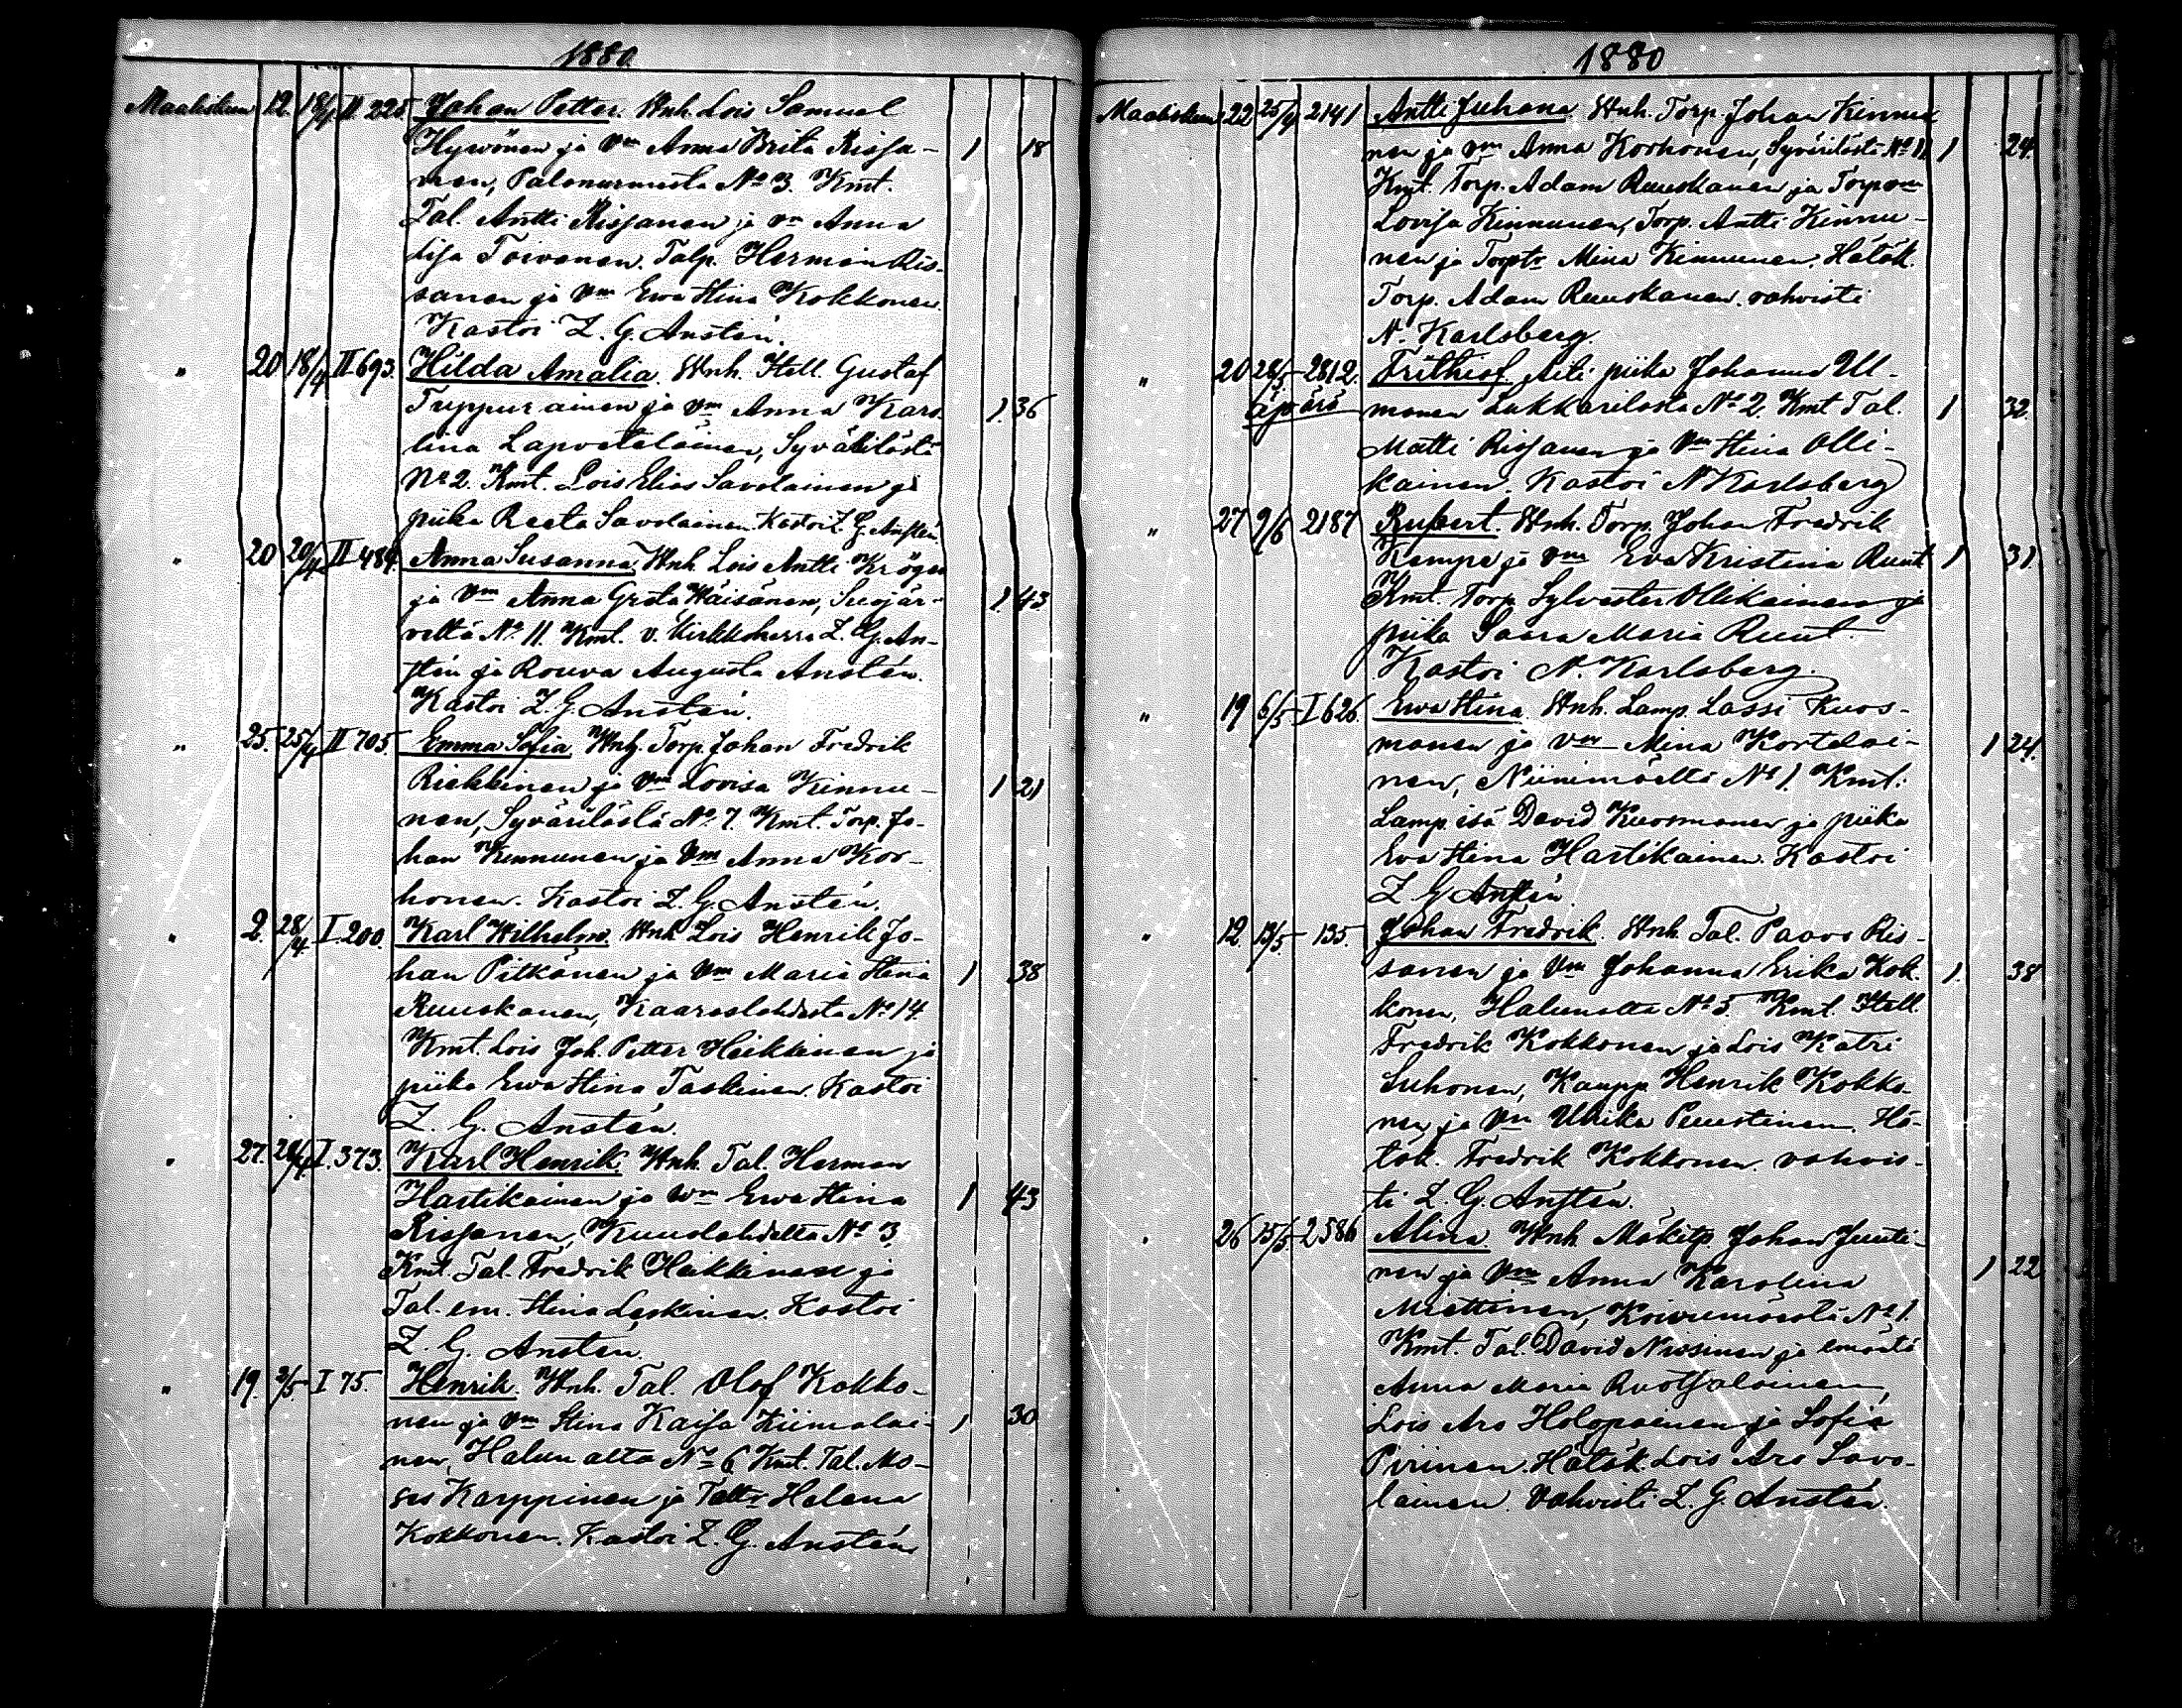 1880
Maaliskuu 12. 18/4 II 225. Johan Petter. Wnh. Lois Samuel
Hywönen ja Vm Anna Brita Rissa- 1 18
nen, Palonurmesta No 3. Kmt.
Tal. Antti Rissanen ja Vm Anna
Lisa Toivanen. Talp. Herman Ris-
sanen ja Vm Ewa Stina Kokkonen.
Kastoi Z. G. Anstén.
" 20 18/4 II 693. Hilda Amalia. Wnh. Itell. Gustaf
Tuppurainen ja Vm Anna Karo- 1. 36
lina Lapveteläinen, Syvärilästä
No 2. Kmt. Lois Elias Savolainen ja
piika Reeta Savolainen. Kastoi Z. G. Anstén.
" 20 20/4 II 484. Anna Susanna. Wnh. Lois Antti Kröger
ja Vm Anna Greta Wäisänen, Suojär- 1. 43
veltä No 11. Kmt. v. Kirkkoherra Z. G. An-
stén ja Rouva Augusta Anstén.
Kastoi Z. G. Anstén.
" 25. 25/4 II 705. Emma Sofia. Wnh. Torp. Johan Fredrik
Riekkinen ja Vm Lovisa Kinnu- 1 21
nen, Syvärilästä No 7. Kmt. Torp. Jo-
han Kinnunen ja Vm Anna Kor-
honen. Kastoi Z. G. Anstén.
" 2. 28/4 I. 200. Karl Wilhelm. Wnh. Lois Henrik Jo-
han Pitkänen ja Vm Maria Stina 1 38
Ruuskanen, Kaaraslahdesta No 14.
Kmt. Lois Joh. Petter Heikkinen ja
piika Ewa Stina Taskinen. Kastoi
Z. G. Anstén.
" 27. 28/4 I. 373. Karl Henrik. Wnh. Tal. Herman
Hartikainen ja Vm Ewa Stina 1 43
Rissanen, Kuuslahdelta No 3,
Kmt. Tal. Fredrik Heikkinen ja
Tal. em. Stina Leskinen. Kastoi
Z. G. Anstén.
" 19. 2/5 I 75. Henrik. Wnh. Tal. Olof Kokko-
nen ja Vm Stina Kaisa Kiimalai- 1 30
nen, Halunalta No 6 Kmt. Tal. Mo-
ses Karppinen ja Taltr Helena
Kokkonen. Kastoi Z. G. Anstén
1880
Maaliskuu 22 25/4 2141 Antti Juhana. Wnh. Torp. Johan Kinnu-
nen ja Vm Anna Korhonen, Syvärilästä No 11 1 24.
Kmt. Torp. Adam Ruuskanen ja Torpvm
Lovisa Kinnunen, Torp. Antti Kinnu-
nen ja Torptr Mina Kinnunen. Hätäk.
Torp. Adam Ruuskanen. vahvisti
N. Karlsberg.
" 20 28/5 2812. Frithiof. Aiti piika Johanna Ul-
äpärä manen Lukkarilasta No 2. Kmt Tal. 1 32.
Matti Rissanen ja Vm Stina Olli-
kainen. Kastoi N Karlsberg
" 27 9/5 2187 Rupert. Wnh. Torp. Johan Fredrik
Kempe ja Vm Eva Kristina Ruut 1 31.
Kmt. Torp Sylvester Ollikainen ja
piika Saara Maria Ruut.
Kastoi N. Karlsberg.
" 19 6/5 I 626. Ewa Stina. Wnh. Lamp. Lassi Kuos-
manen ja Vm Mina Kortelai- 1 24.
nen, Niinimäeltä No 1. Kmt:
Lamp. isä David Kuosmanen ja piika
Eva Stina Hartikainen. Kastoi
Z G Anstén.
" 12 13/5 135. Johan Fredrik. Wnh. Tal. Paavo Ris-
sanen ja Vm Johanna Erika Kok- 1. 38
konen, Halunalta No 5. Kmt. Itell.
Fredrik Kokkonen ja Lois Katri
Suhonen, Kaupp. Henrik Kokko-
nen ja Vm Ulrika Puustinen. Hä-
täk. Fredrik Kokkonen. vahvis-
ti Z. G. Anstén.
" 26 15/5 2586 Alina. Wnh. Mäkitp. Johan Juuti-
nen ja Vm Anna Karolina 1 22
Miettinen, Koivumäestä No 1.
Kmt. Tal. David Nissinen ja emäntä
Anna Maria Ruotsalainen,
Lois Aro Holopainen ja Sofia
Pirinen. Hätäk. Lois Aro Savo-
lainen. Vahvisti Z. G. Anstén.